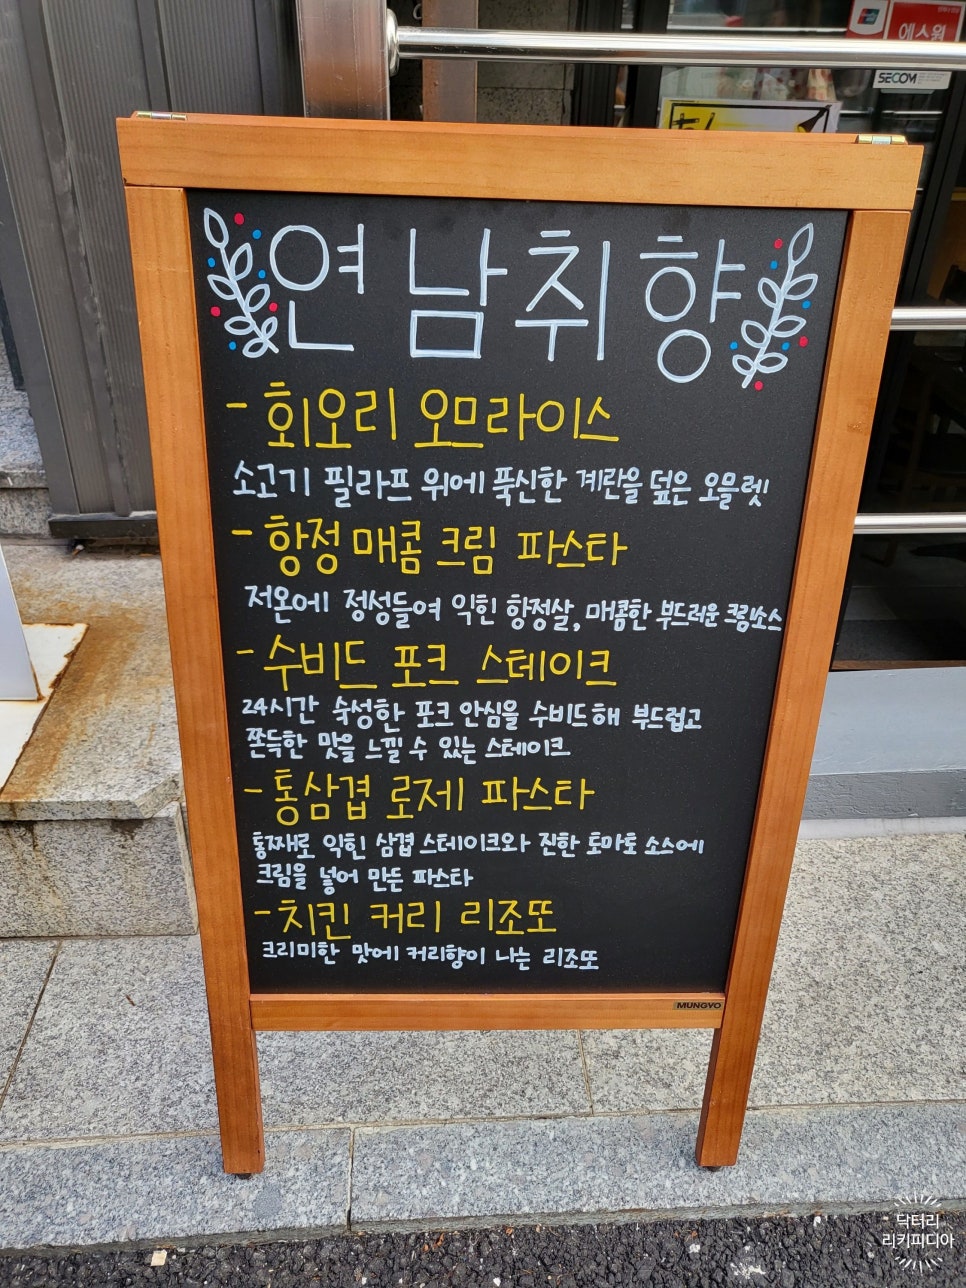 에스원
SECOM
연남취향
- 회오리 오므라이스
소고기 필라프 위에 푹신한 계란을 덮은 오믈렛
- 항정 매콤 크림 파스타
저온에 정성들여 익힌 항정살, 매콤한 부드러운 크림소스
- 수비드 포크 스테이크
24시간 숙성한 포크 안심을 수비드해 부드럽고
쫀득한 맛을 느낄 수 있는 스테이크
- 통삼겹 로제 파스타
통째로 익힌 삼겹 스테이크와 진한 토마토 소스에
크림을 넣어 만든 파스타
- 치킨 커리 리조또
크리미한 맛에 커리향이 나는 리조또
MUNGYO
닥터리
리키피디아